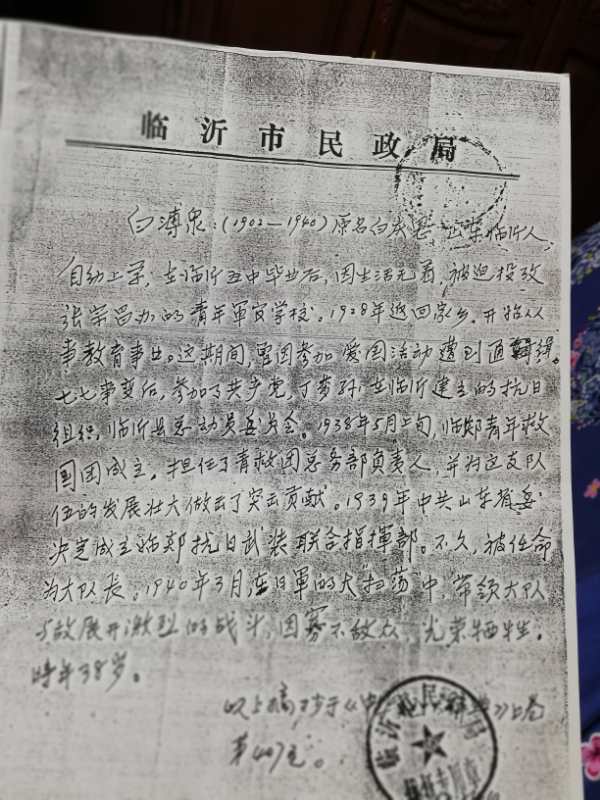 临沂市民政局
白溥泉:(1902—1940)原名白 山东临沂人,
自幼上学,在临沂五中毕业后,因生活无着,被迫投考
张宗昌办的青年軍官学校。1928年返回家乡,开始从
事教育事业。这期间,曾因参加爱国活动遭到通緝。
七七事变后,参加了共产党,丁梦孙在临沂建立的抗日
组织,临沂县总动员委员会。1938年5月上旬,临郯青年救
国团成立,担任了青救团总务部负责人,并为这支队
伍的发展壮大做出了突出贡献。1939年中共山东省委
决定成立临郯抗日武装联合指揮部。不久,被任命
为大队长。1940年3月,在日軍的大扫荡中,带领大队
与敌展开激烈的战斗,因寡不敌众,光荣牺牲。
時年38岁。
以上摘抄于《中 》上卷
第407页。
临沂 民政局